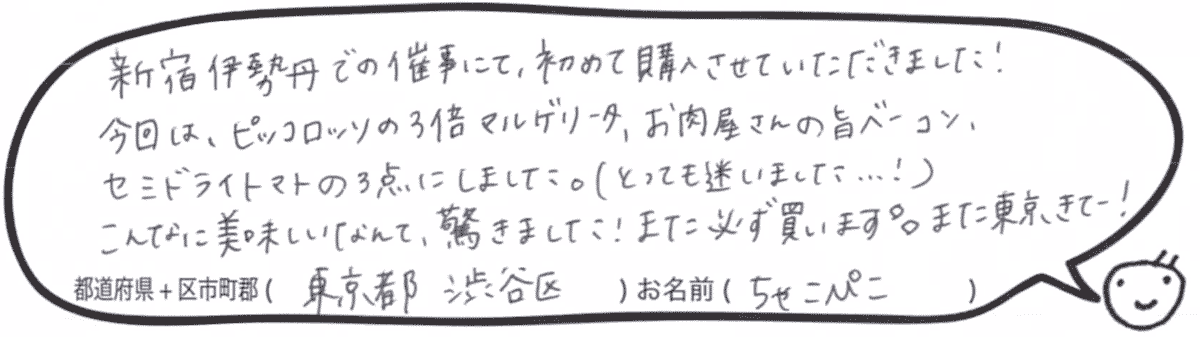 新宿伊勢丹での催事にて、初めて購入させていただきました!
今回は、ピッコロッソの3倍マルゲリータ、お肉屋さんの旨ベーコン、
セミドライトマトの3点にしました。(とっても迷いました…!)
こんなに美味しいなんて、驚きました!また必ず買います。また東京きてー!
都道府県+区市町郡( 東京都 渋谷区 )お名前( ちゃこぺこ )